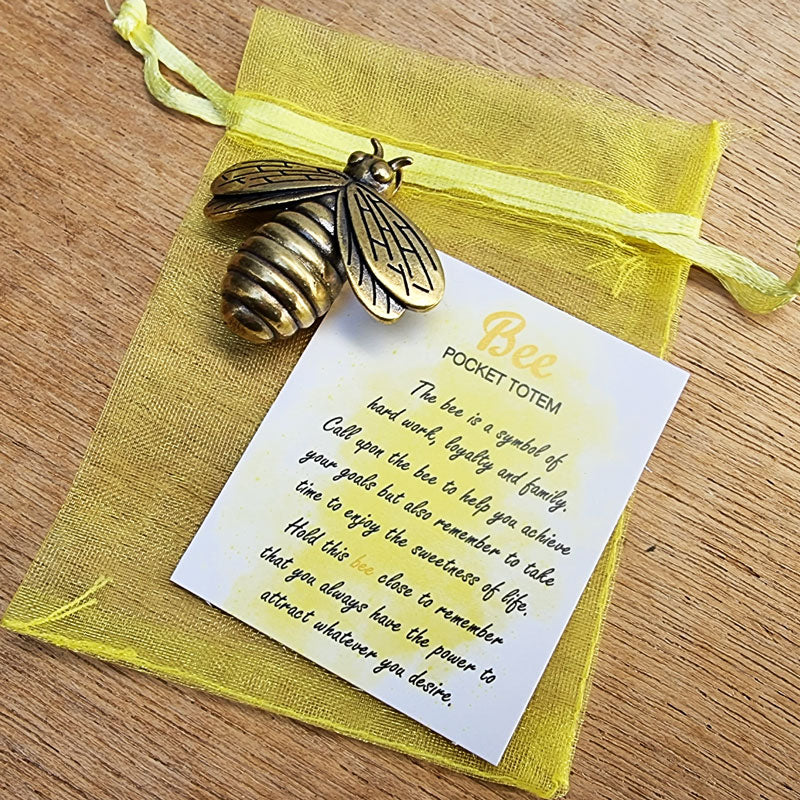 Bee
POCKET TOTEM
The bee is a symbol of
hard work, loyalty and family.
Call upon the bee to help you achieve
your goals but also remember to take
time to enjoy the sweetness of life.
Hold this bee close to remember
that you always have the power to
attract whatever you desire.